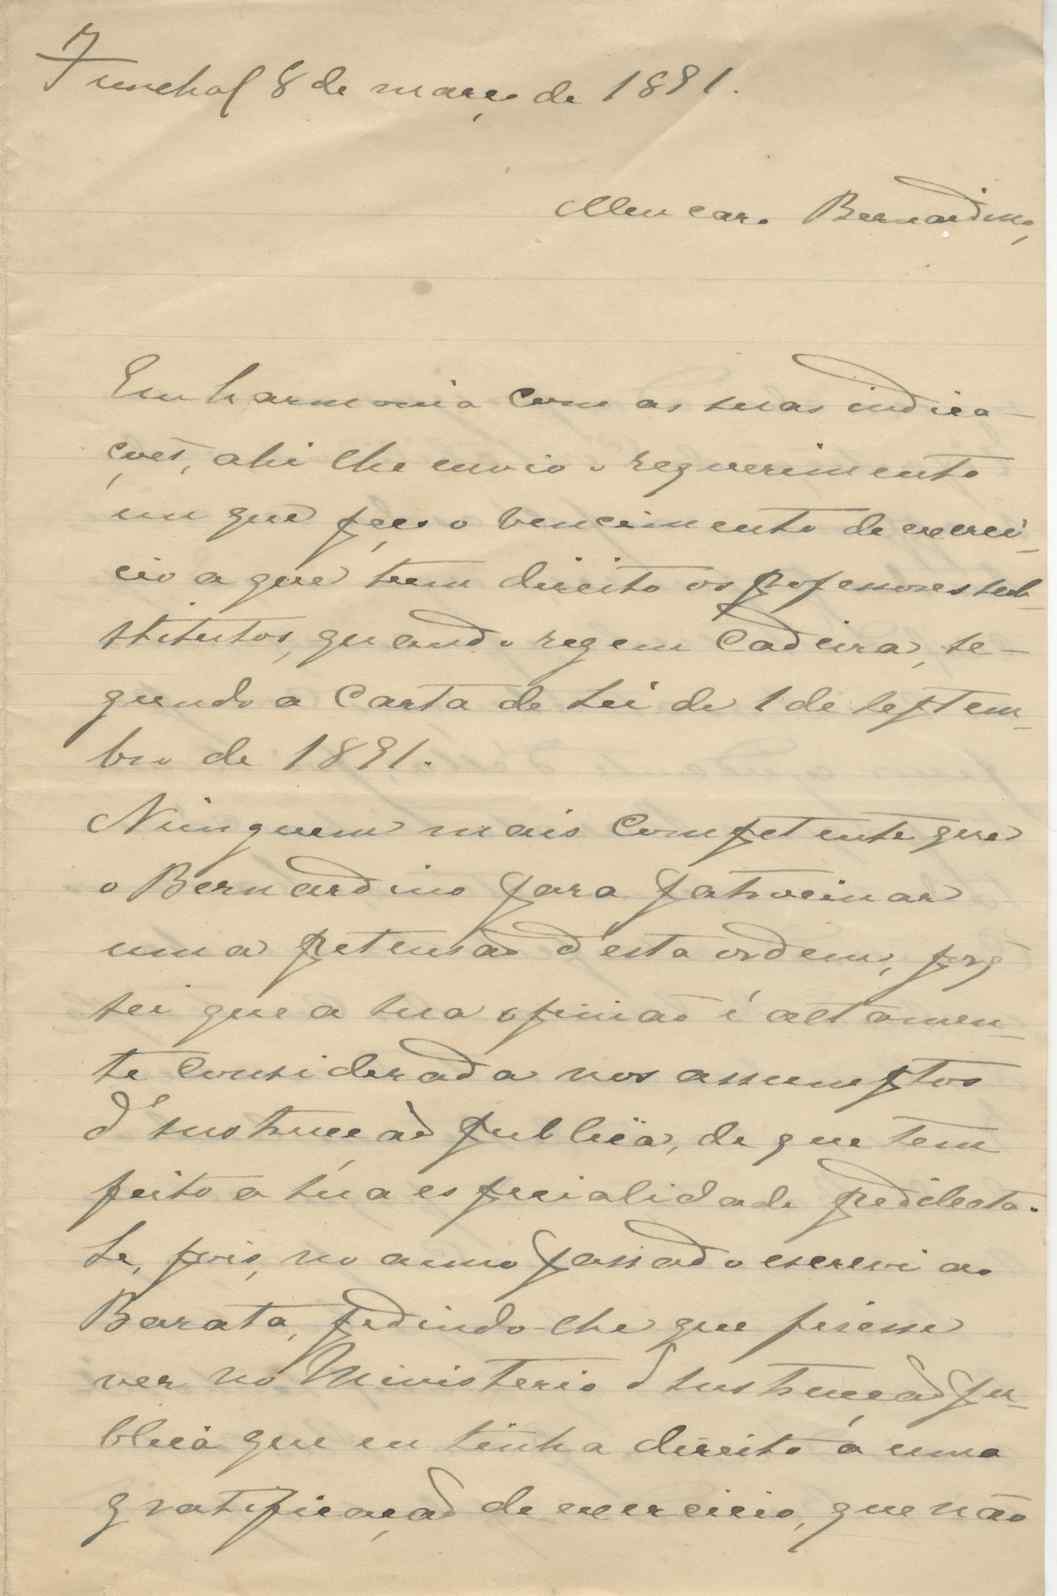 Funchal 8 de março de 1891.
Meu caro Bernardino,
Em harmonia com as suas indica-
ções, ahi lhe envio o requerimento
em que peço o vencimento de exerci-
cio a que teem direito os professores sub-
stitutos, quando regem cadeira, se-
gundo a Carta de Lei de 1 de septem-
bro de 1891.
Ninguem mais competente que
o Bernardino para patrocinar
uma pretensão d'esta ordem, porq
sei que a sua opinião é altamen-
te considerada nos assumptos
d'instrucção publica, de que tem
feito a sua especialidade predilecta.
Se, pois, no anno passado escrevi ao
Barata, pedindo lhe que fizesse
ver no Ministerio d'Instrucção Pu-
blica que eu tinha direito a uma
gratificação de exercicio, que não